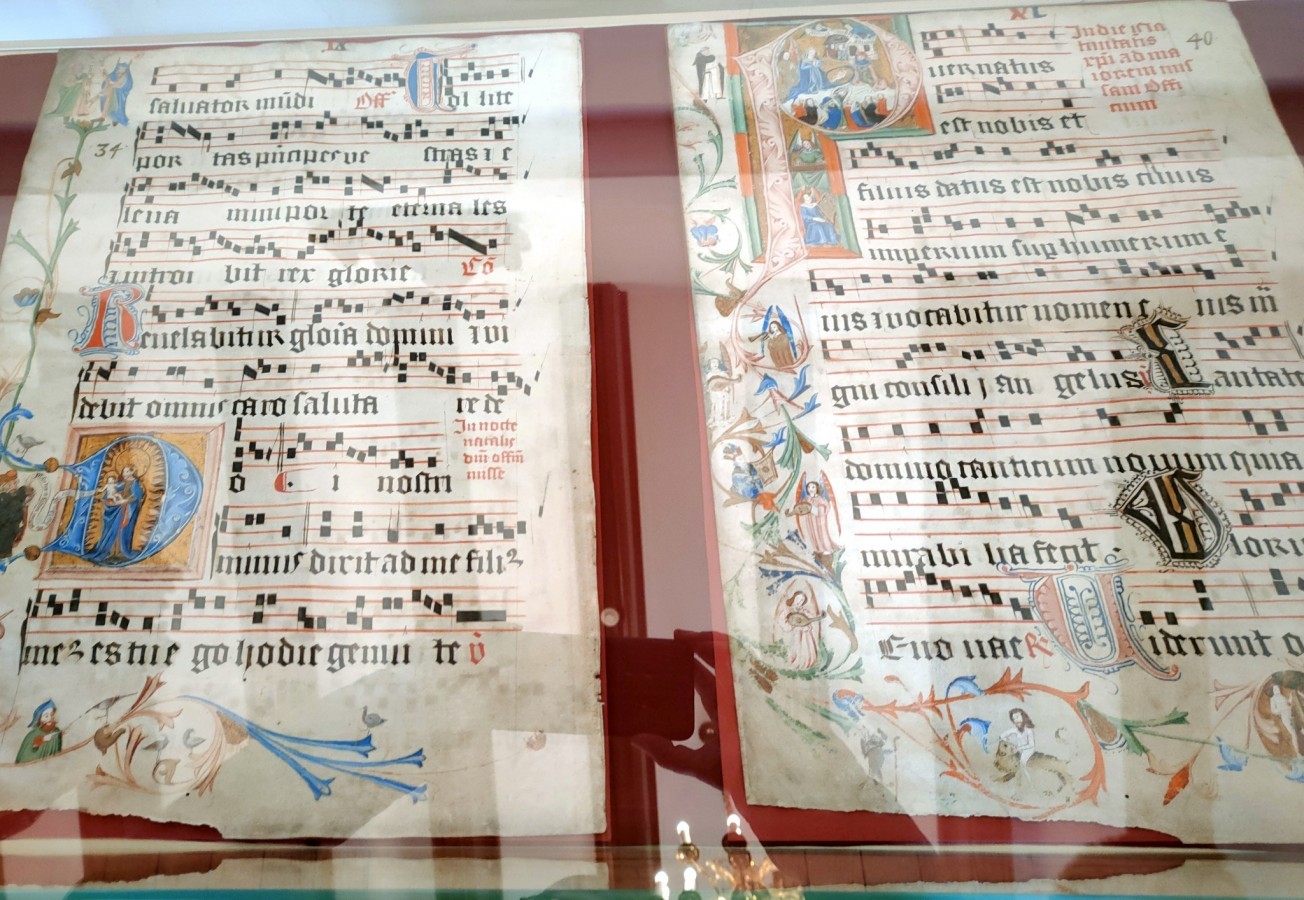 IX
saluator mūdi Off Tollite
34
por tas pn̄cipes ve stras i e
leua mini por te eterna les
i introi bit rex glorie Cō
Reuelabitur gloīa domini i vi
debit omnis caro saluta re de
In nocte
natalis
dn̄i offm̄
misse
o i nostri
Dominus dixit ad me filiꝰ
meꝰ es tu e go hodie genui te v̄
XL
40
In die
ad ma
iorem mis
sam offi
cium
Puer natus
est nobis et
filius datus est nobis cuius
imperium sup humerum e
ius i vocabitur nomen e ius m̄
gni consili j an gelus Cantate
domino canticum nouum quia
mirabi lia fecit Glori
Euo uae R̄ Viderunt o